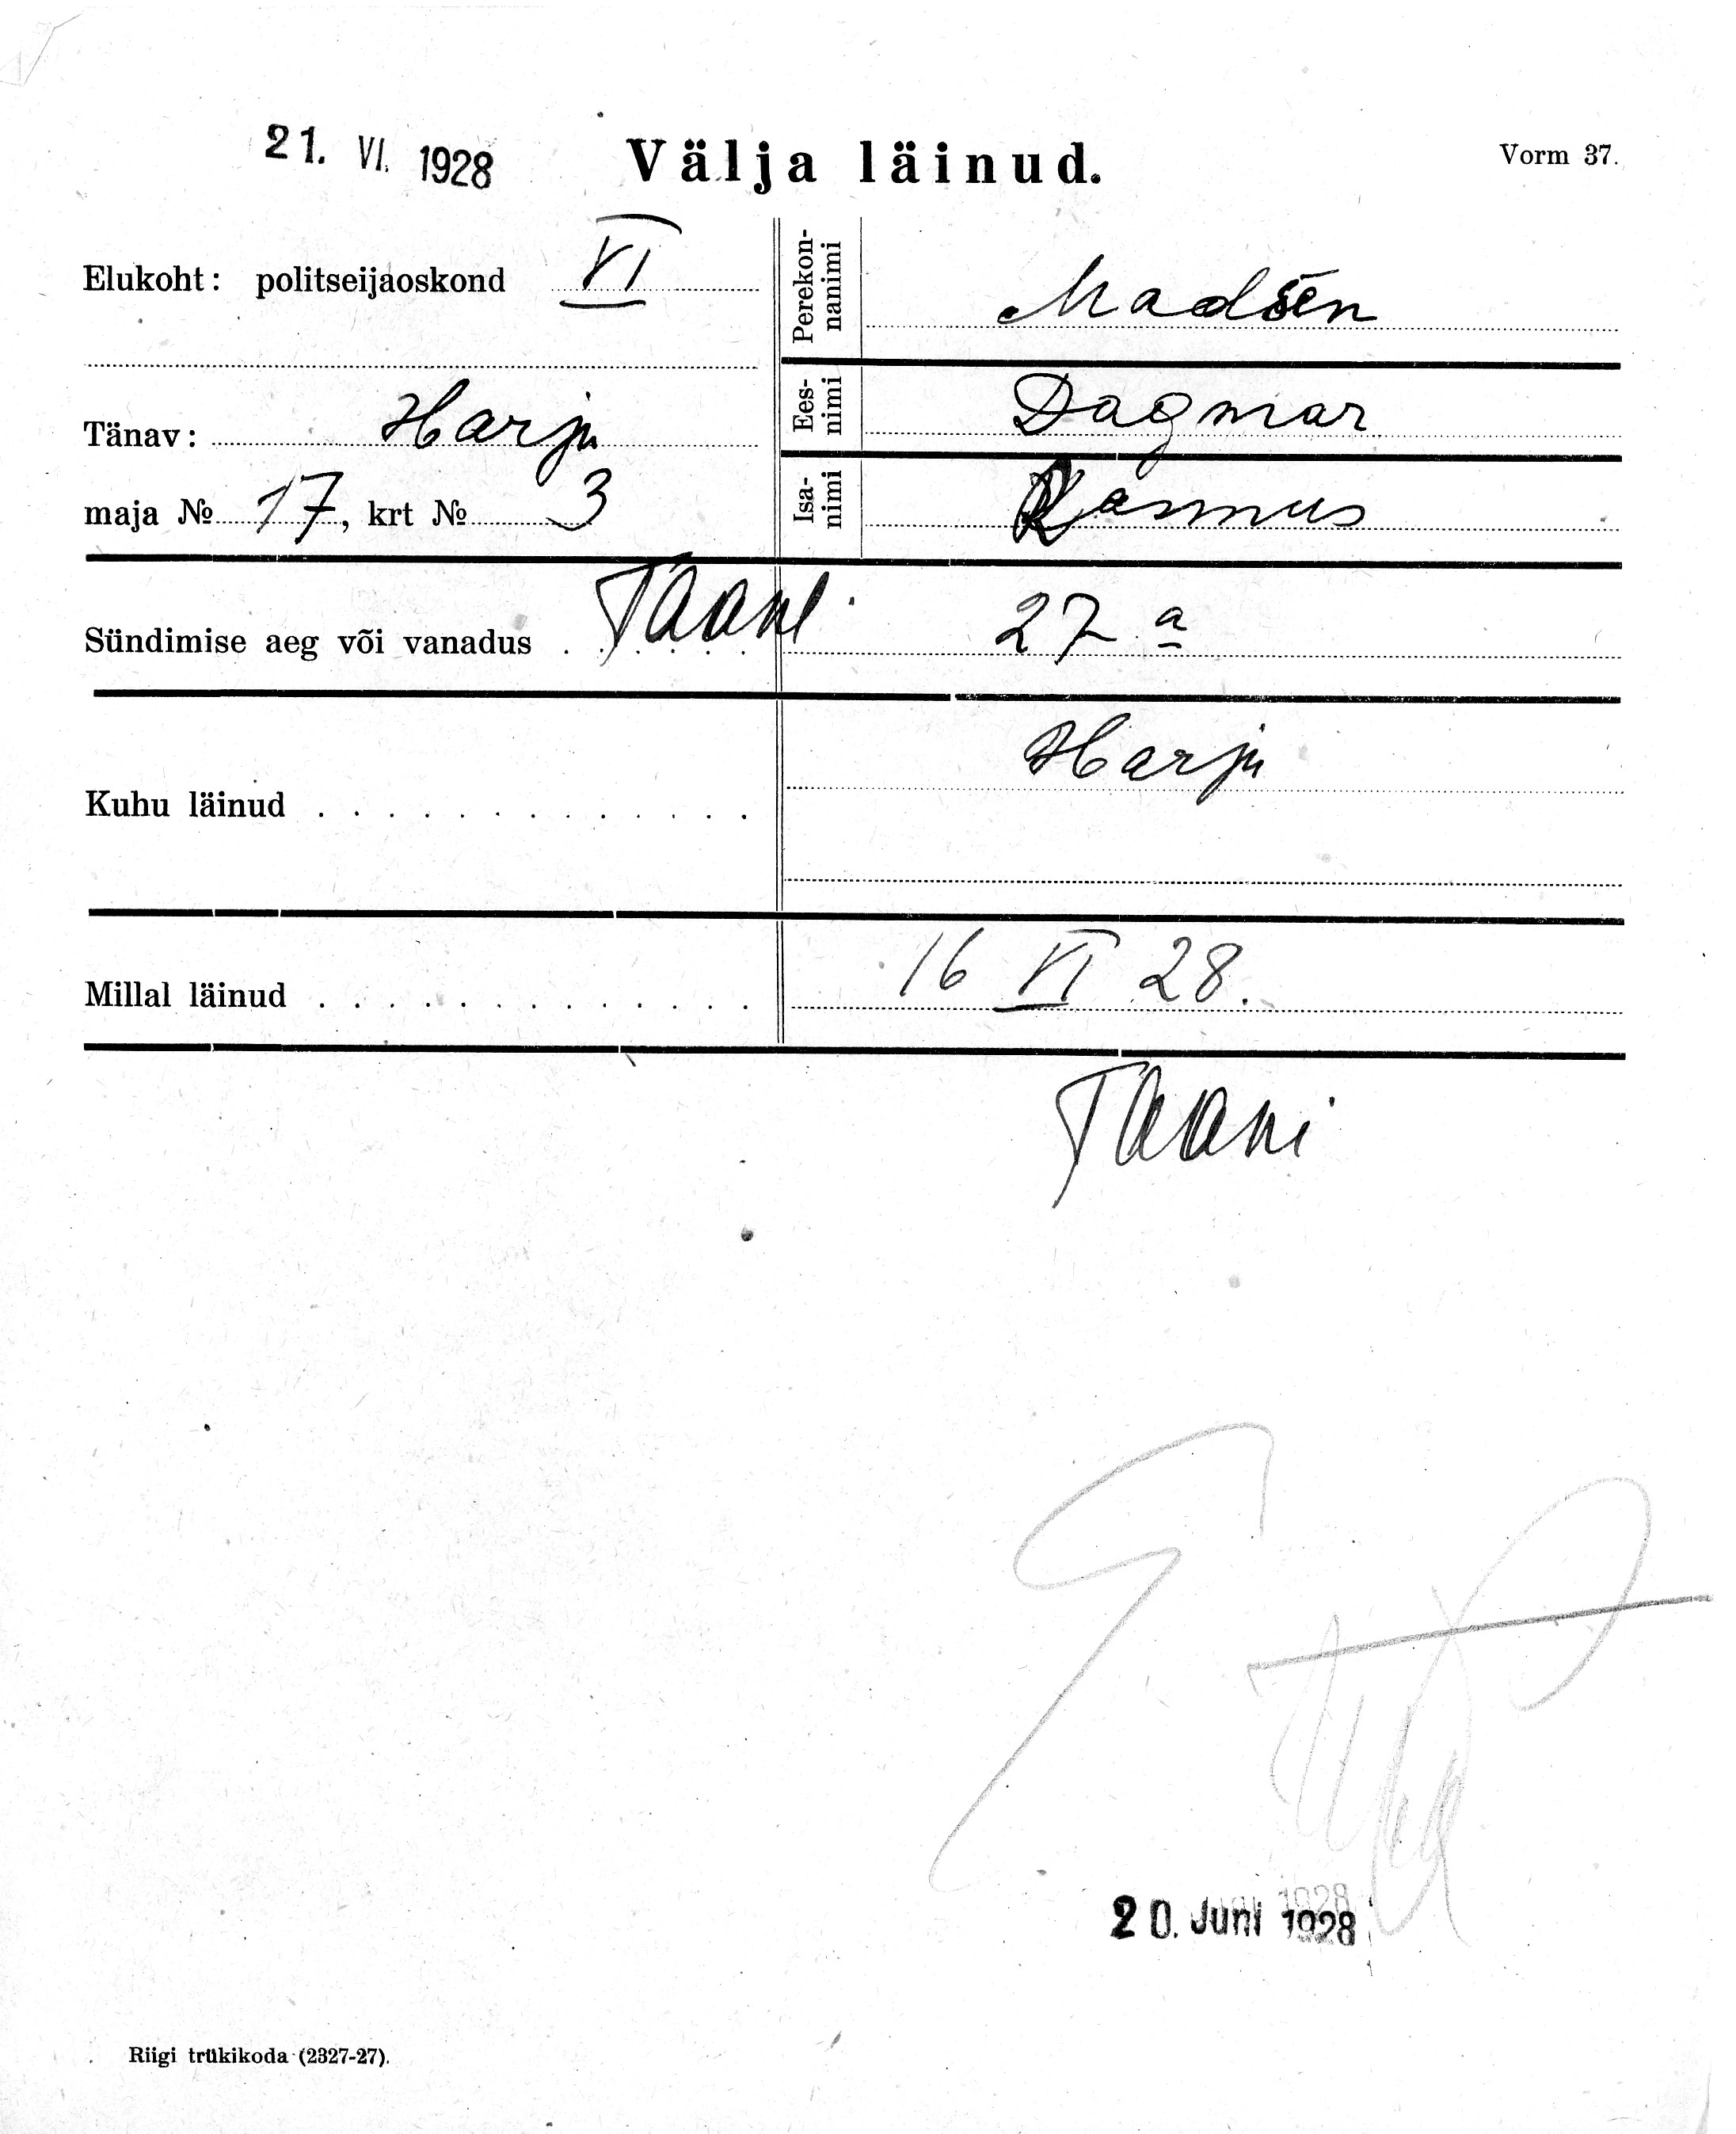 21. VI. 1928 Välja läinud. Vorm 37.
Elukoht: politseijaoskond VI
Perekon-
nanimi
Madsen
Ees-
nimi
Dagmar
Tänav: Harju
Isa-
nimi
Rasmus
maja № 17, krt № 3
Sündimise aeg või vanadus Taani 27 a
Kuhu läinud Harju
Millal läinud 16 VI 28.
Taani
20. Juni 1928
Riigi trükikoda (2327-27).